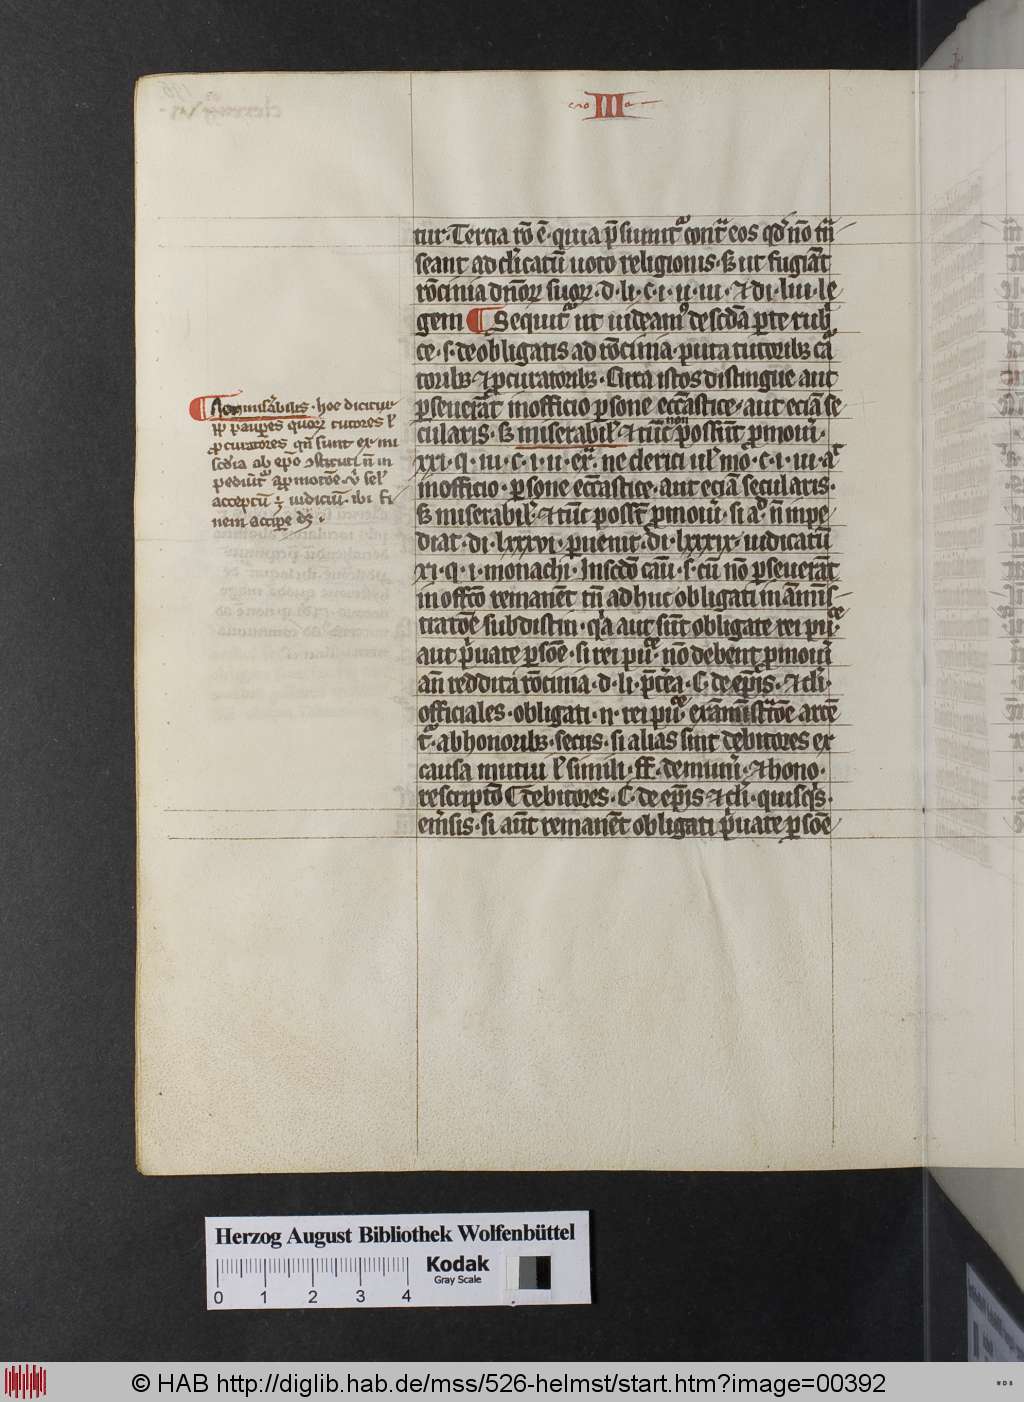 III
tur · Tercia rō ē · quia p̄sumit᷑ cont᷑ eos qd̓ nō trā
seant ad cl̓icatū uoto religionis · S; ut fugiāt
rōcinia dn̄oꝝ suoꝝ · d · li · c · i · ii · iii · ⁊ di · liii · le
gem ¶ Sequit᷑ ut uideam᷒ de scd̄a ꝑte rub̓
ce · s · de obligatis ad rōcinia · puta tutorib; cā
torib; ⁊ ꝓcuratorib; · Circa istos distingue aut
ꝑseuerāt in officio ꝑsone ecc̄astice · aut eciā se
cularis · S; miserabil̓ · ⁊ tūc non possūt ꝓmoui ·
xxi · q · iii · c · i · ii · ex᷑ · ne clerici ul̓ mō · c · i · iii · aᷓt
in officio · ꝑsone ecc̄astice · aut eciā secularis ·
S; miserabil̓ · ⁊ tūc possūt ꝓmoui · si aº n̄ inpe
diat · di · lxxxvi · ꝑuenit · di · lxxxix · iudicatū
xi · q · i · monachi · In scd̄o cāu · s · cū nō ꝑseuerāt
in offic̄o remanēt tn̄ ad huc obligati in āminis
tratōe subdistin · q̓a aut sūt obligate rei pu᷑
aut p̓uate ꝑsōe · si rei pu᷑ · nō debent ꝓmoui
an̄ reddita rōcinia · d · li · p̄t̓ea · C · de ep̄is · ⁊ cl̓i ·
officiales · obligati · n · rei pu᷑ · ex āministratōe arcē
t᷑ · ab honorib; · secus · si alias sint debitores ex
causa mutui l̓ simili · ff · de mun̓i · ⁊ hono ·
rescripto C debitores · C · de ep̄is ⁊ cl̓i · quisq̓s ·
em̓sis · si aūt remanēt obligati p̓uate ꝑsōe
¶ Non mis̓abilis · hoc dicitur
ꝓp̄ pauꝑes quoꝝ tutores l̓
ꝓcuratores qn̄ sunt ex mi
sc̄dia ab ep̄o ꝯstituti n̄ in
pediūt᷑ a ꝓmotōe
acceptū iudiciū · ibi fi
nem accipe
Herzog August Bibliothek Wolfenbüttel
0 1 2 3 4
Kodak
Gray Scale
© HAB http://diglib.hab.de/mss/526-helmst/start.htm?image=00392